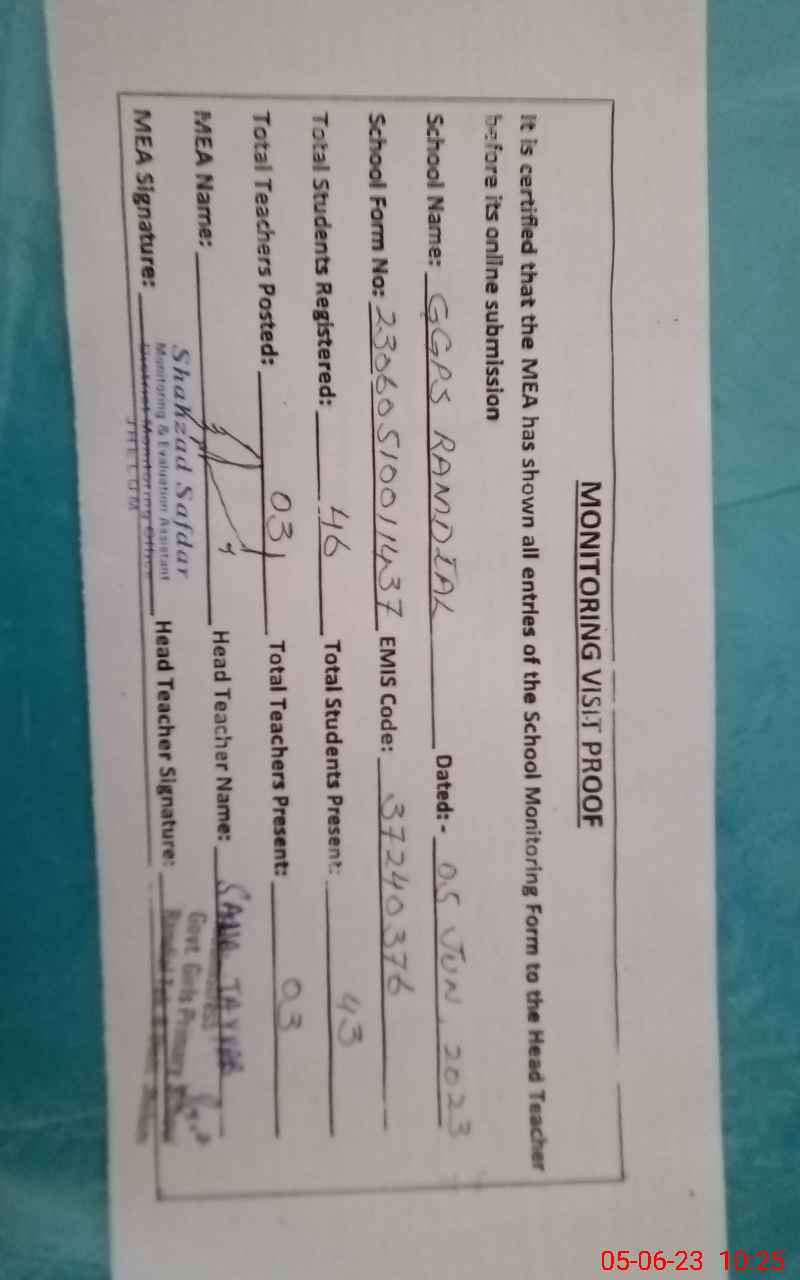 MONITORING VISIT PROOF
It is certified that the MEA has shown all entries of the School Monitoring Form to the Head Teacher
before its online submission
School Name: GGPS RAMDIAL Dated:- 05 JUN, 2023
School Form No: 23060510011437 EMIS Code: 37240376
Total Students Registered: 46 Total Students Present: 43
Total Teachers Posted: 03 Total Teachers Present: 03
MEA Name: Head Teacher Name: SANA
MEA Signature: Head Teacher Signature:
Shahzad Safdar
Monitoring & Evaluation Assistant
District Monitoring Office
JHELUM
Govt. Girls Primary
05-06-23 10:25